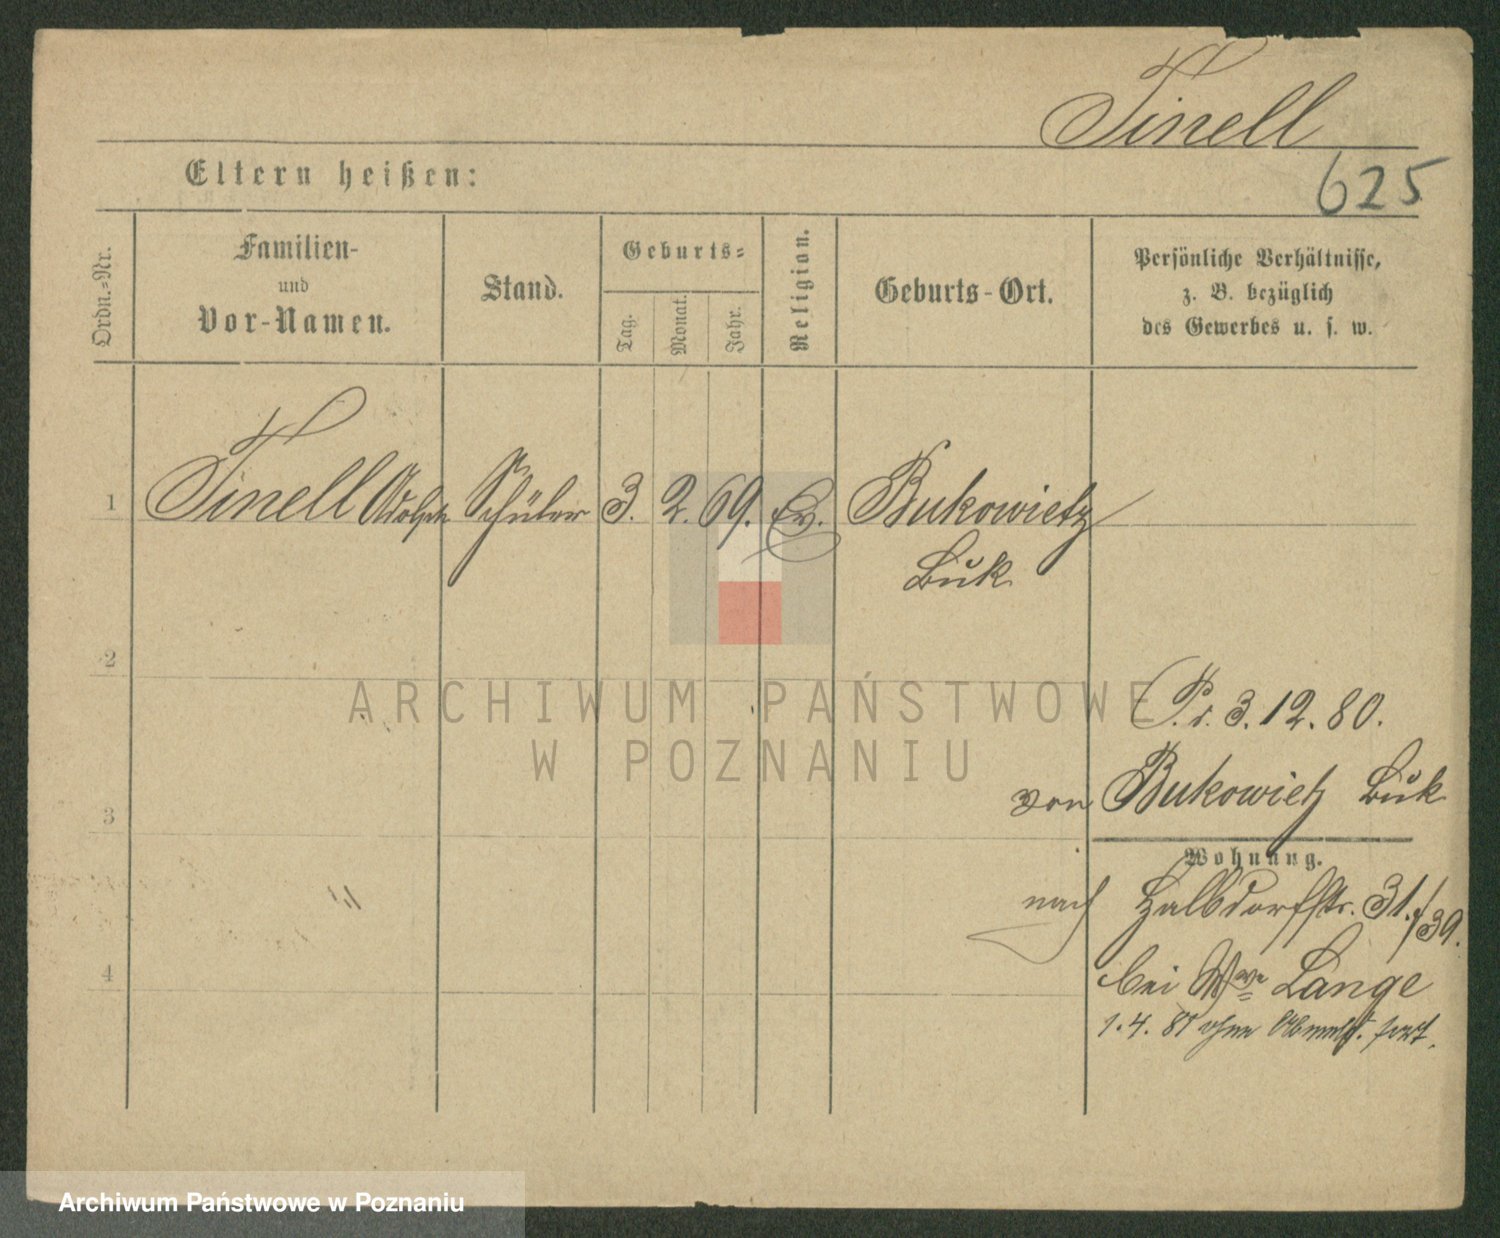 Tinell
625
Eltern heißen:
Ordn.-Nr.
Familien-
und
Vor-Namen.
Stand.
Geburts-
Tag.
Monat.
Jahr.
Religion.
Geburts-Ort.
Persönliche Verhältnisse,
z. B. bezüglich
des Gewerbes u. s. w.
1 Tinell Adolph Schüler 3. 2. 69. Ev. Bukowietz
Buk
2
ARCHIWUM PAŃSTWOWE
W POZNANIU
3. 12. 80.
von Bukowietz Buk
3
Wohnung.
nach Halbdorfstr. 31./39.
4
bei Wwe Lange
1. 4. 81 ohne Abmeld. fort.
Archiwum Państwowe w Poznaniu